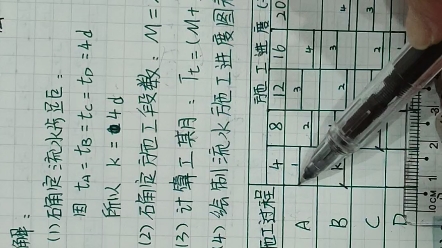 解:
(1)确定流水步距:
因 tA=tB=tC=tD=4d
所以 K=4d
(2)确定施工段数: M=
(3)计算工期: Tt=(M+
(4)绘制流水施工进度图表
施工过程 施工进度(
4 8 12 16 20
A 1 2 3 4
B K 2 3 4
C 2 3
D 1
0CM 1 2 3